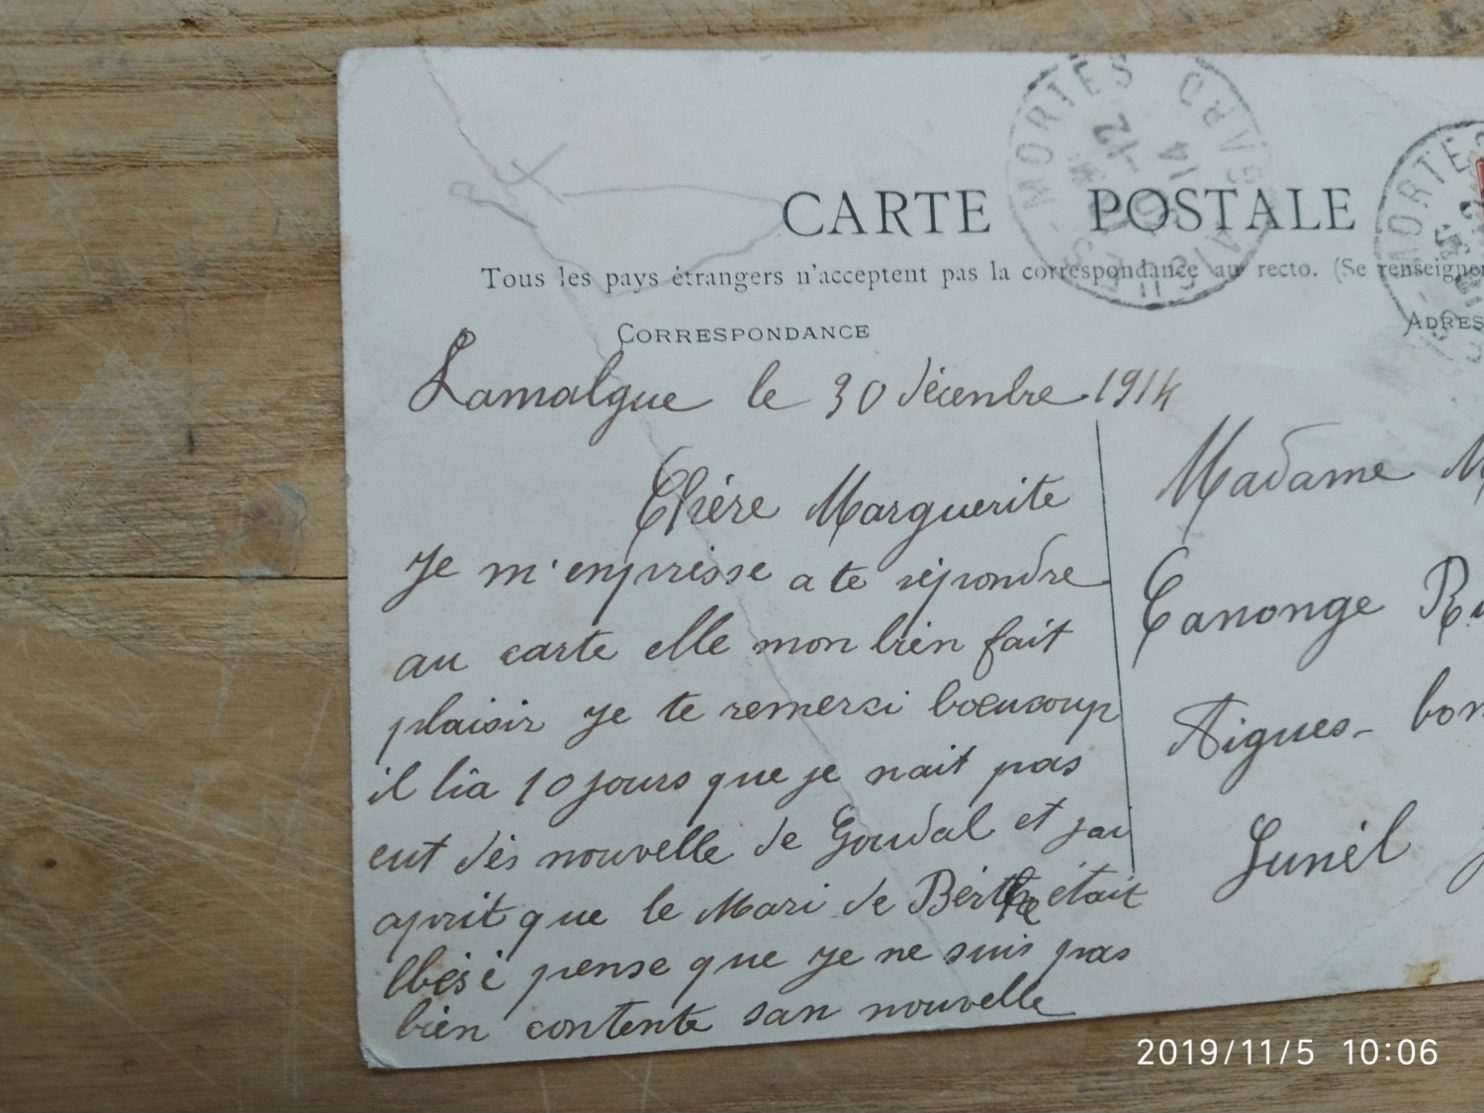 CARTE POSTALE
Tous les pays étrangers n'acceptent pas la correspondance au recto. (Se renseigner
CORRESPONDANCE
ADRES
Lamalgue le 30 décenbre 1914
Chére Marguerite
Je m'enpresse a te répondre
au carte elle mon bien fait
plaisir je te remersi boeucoup
il lia 10 jours que je nait pas
eut dés nouvelle de Goudal et jai
aprit que le Mari de Bérthe était
blésé pense que je ne suis pas
bien contente san nouvelle
Madame M
Canonge Ru
Aigues-
Lunél
MORTES
GARD
MORTES
2019/11/5 10:06